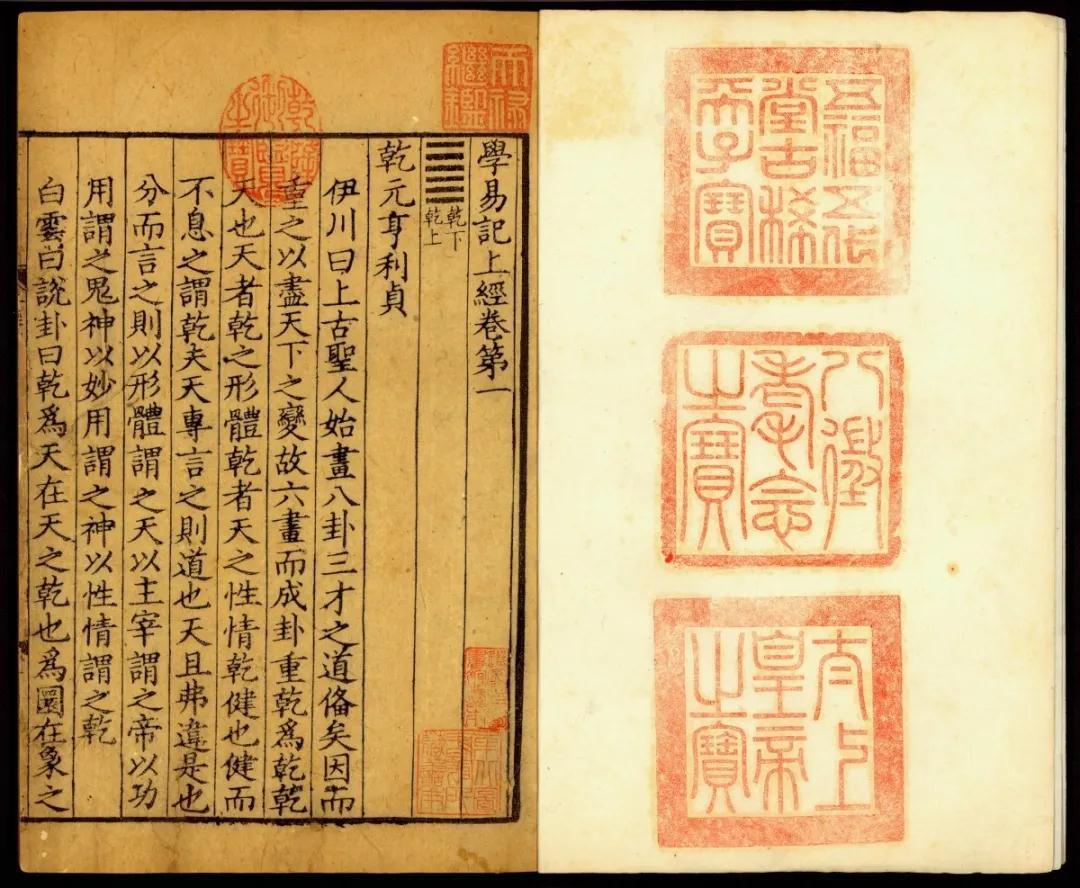 五福五代
堂古稀
天子寶
八徵
耄念
之寶
太上
皇帝
之寶
天禄
繼鑑
學易記上經卷第一
乾下
乾上
乾元亨利貞
乾隆
御覽
之寶
伊川曰上古聖人始畫八卦三才之道俻矣因而
重之以盡天下之變故六畫而成卦重乾爲乾乾
天也天者乾之形體乾者天之性情乾健也健而
不息之謂乾夫天專言之則道也天且弗違是也
分而言之則以形體謂之天以主宰謂之帝以功
用謂之鬼神以妙用謂之神以性情謂之乾
白雲曰說卦曰乾爲天在天之乾也爲圜在象之